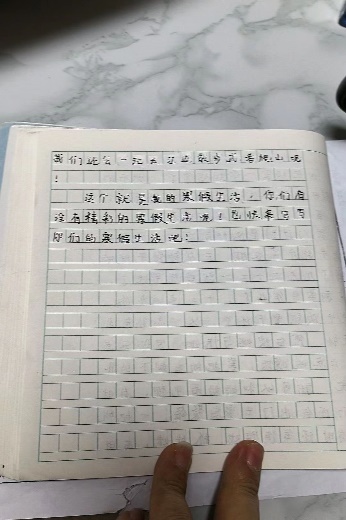 我们还会一起去分山散步或者爬山呢
！
这个就是我的寒假生活，你们有
没有精彩的寒假生活呢！也快来写写
你们的寒假生活吧！